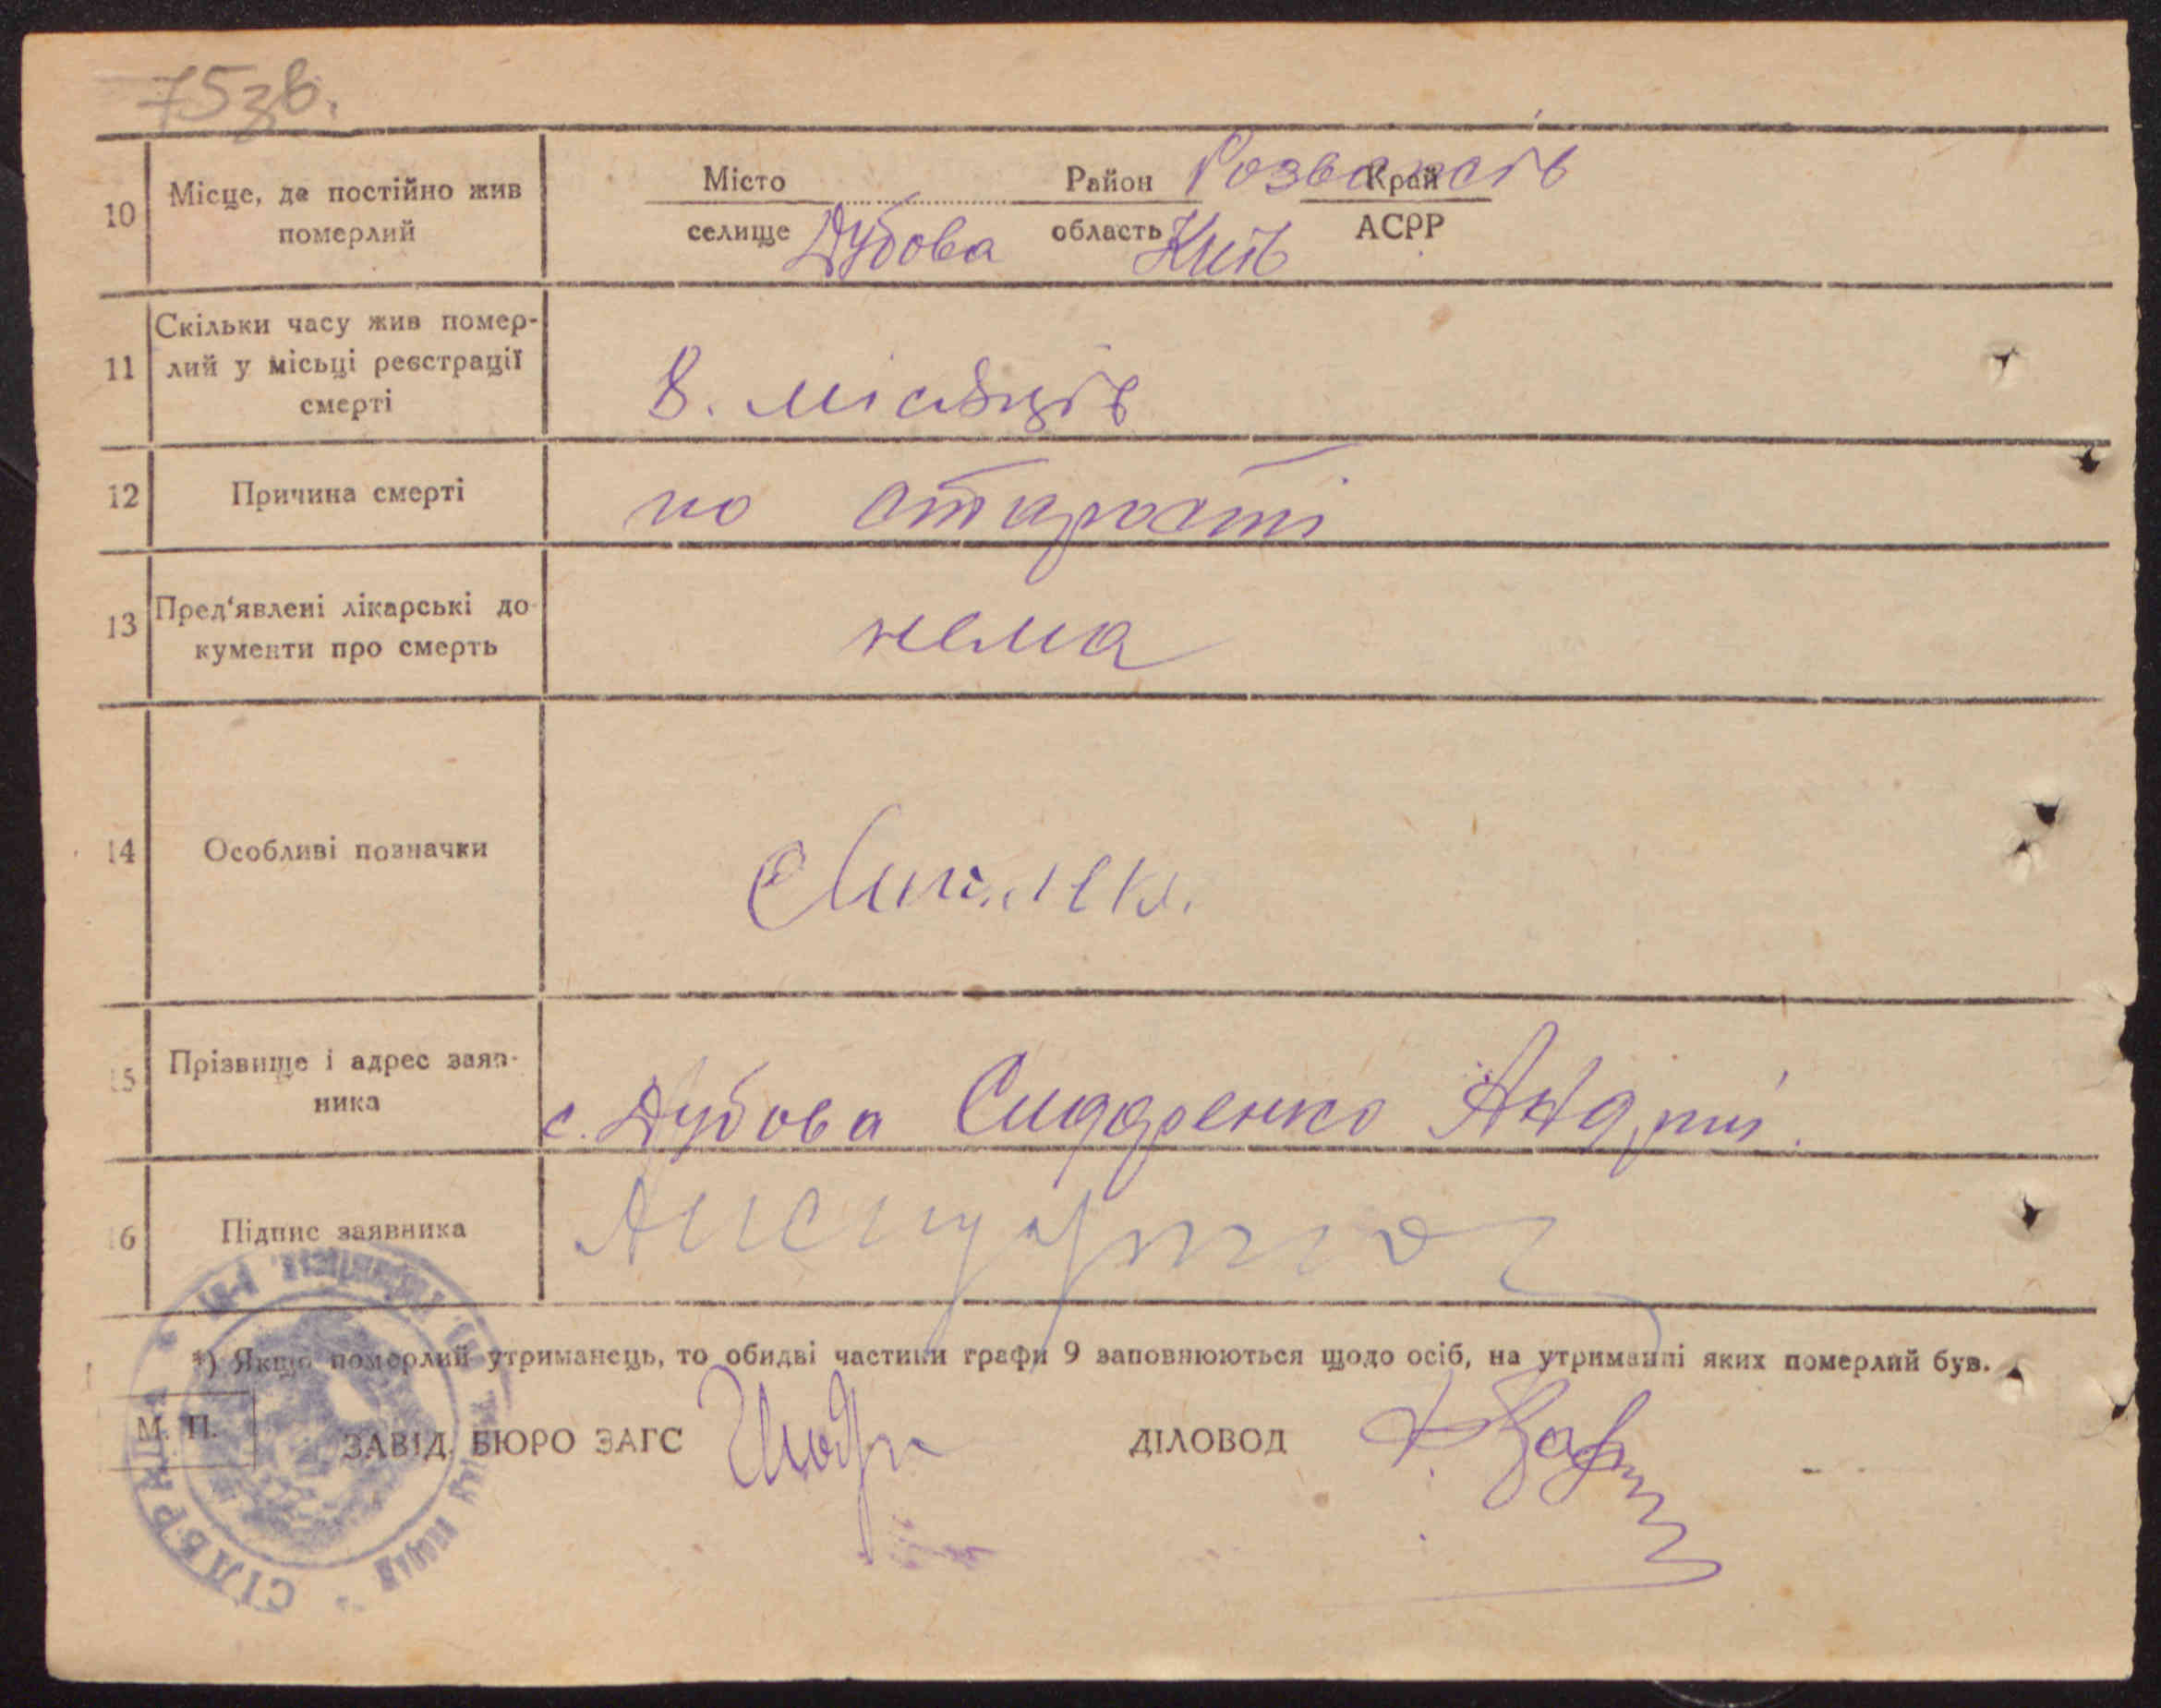 75зв.
10 Місце, де постійно жив померлий
Місто Район Розважів Край
селище Дубова область Київ АСРР
11 Скільки часу жив помер-
лий у місьці реєстрації
смерті
8. місяців
12 Причина смерті по старості
13 Пред'явлені лікарські до-
кументи про смерть
нема
14 Особливі позначки
15 Прізвище і адрес заяв-
ника
с. Дубова Сидоренко Андрій.
16 Підпис заявника
*) Якщо померлий утриманець, то обидві частини графи 9 заповнюються щодо осіб, на утриманні яких померлий був.
М. П.
ЗАВІД. БЮРО ЗАГС ДІЛОВОД
СІЛЬРАДА